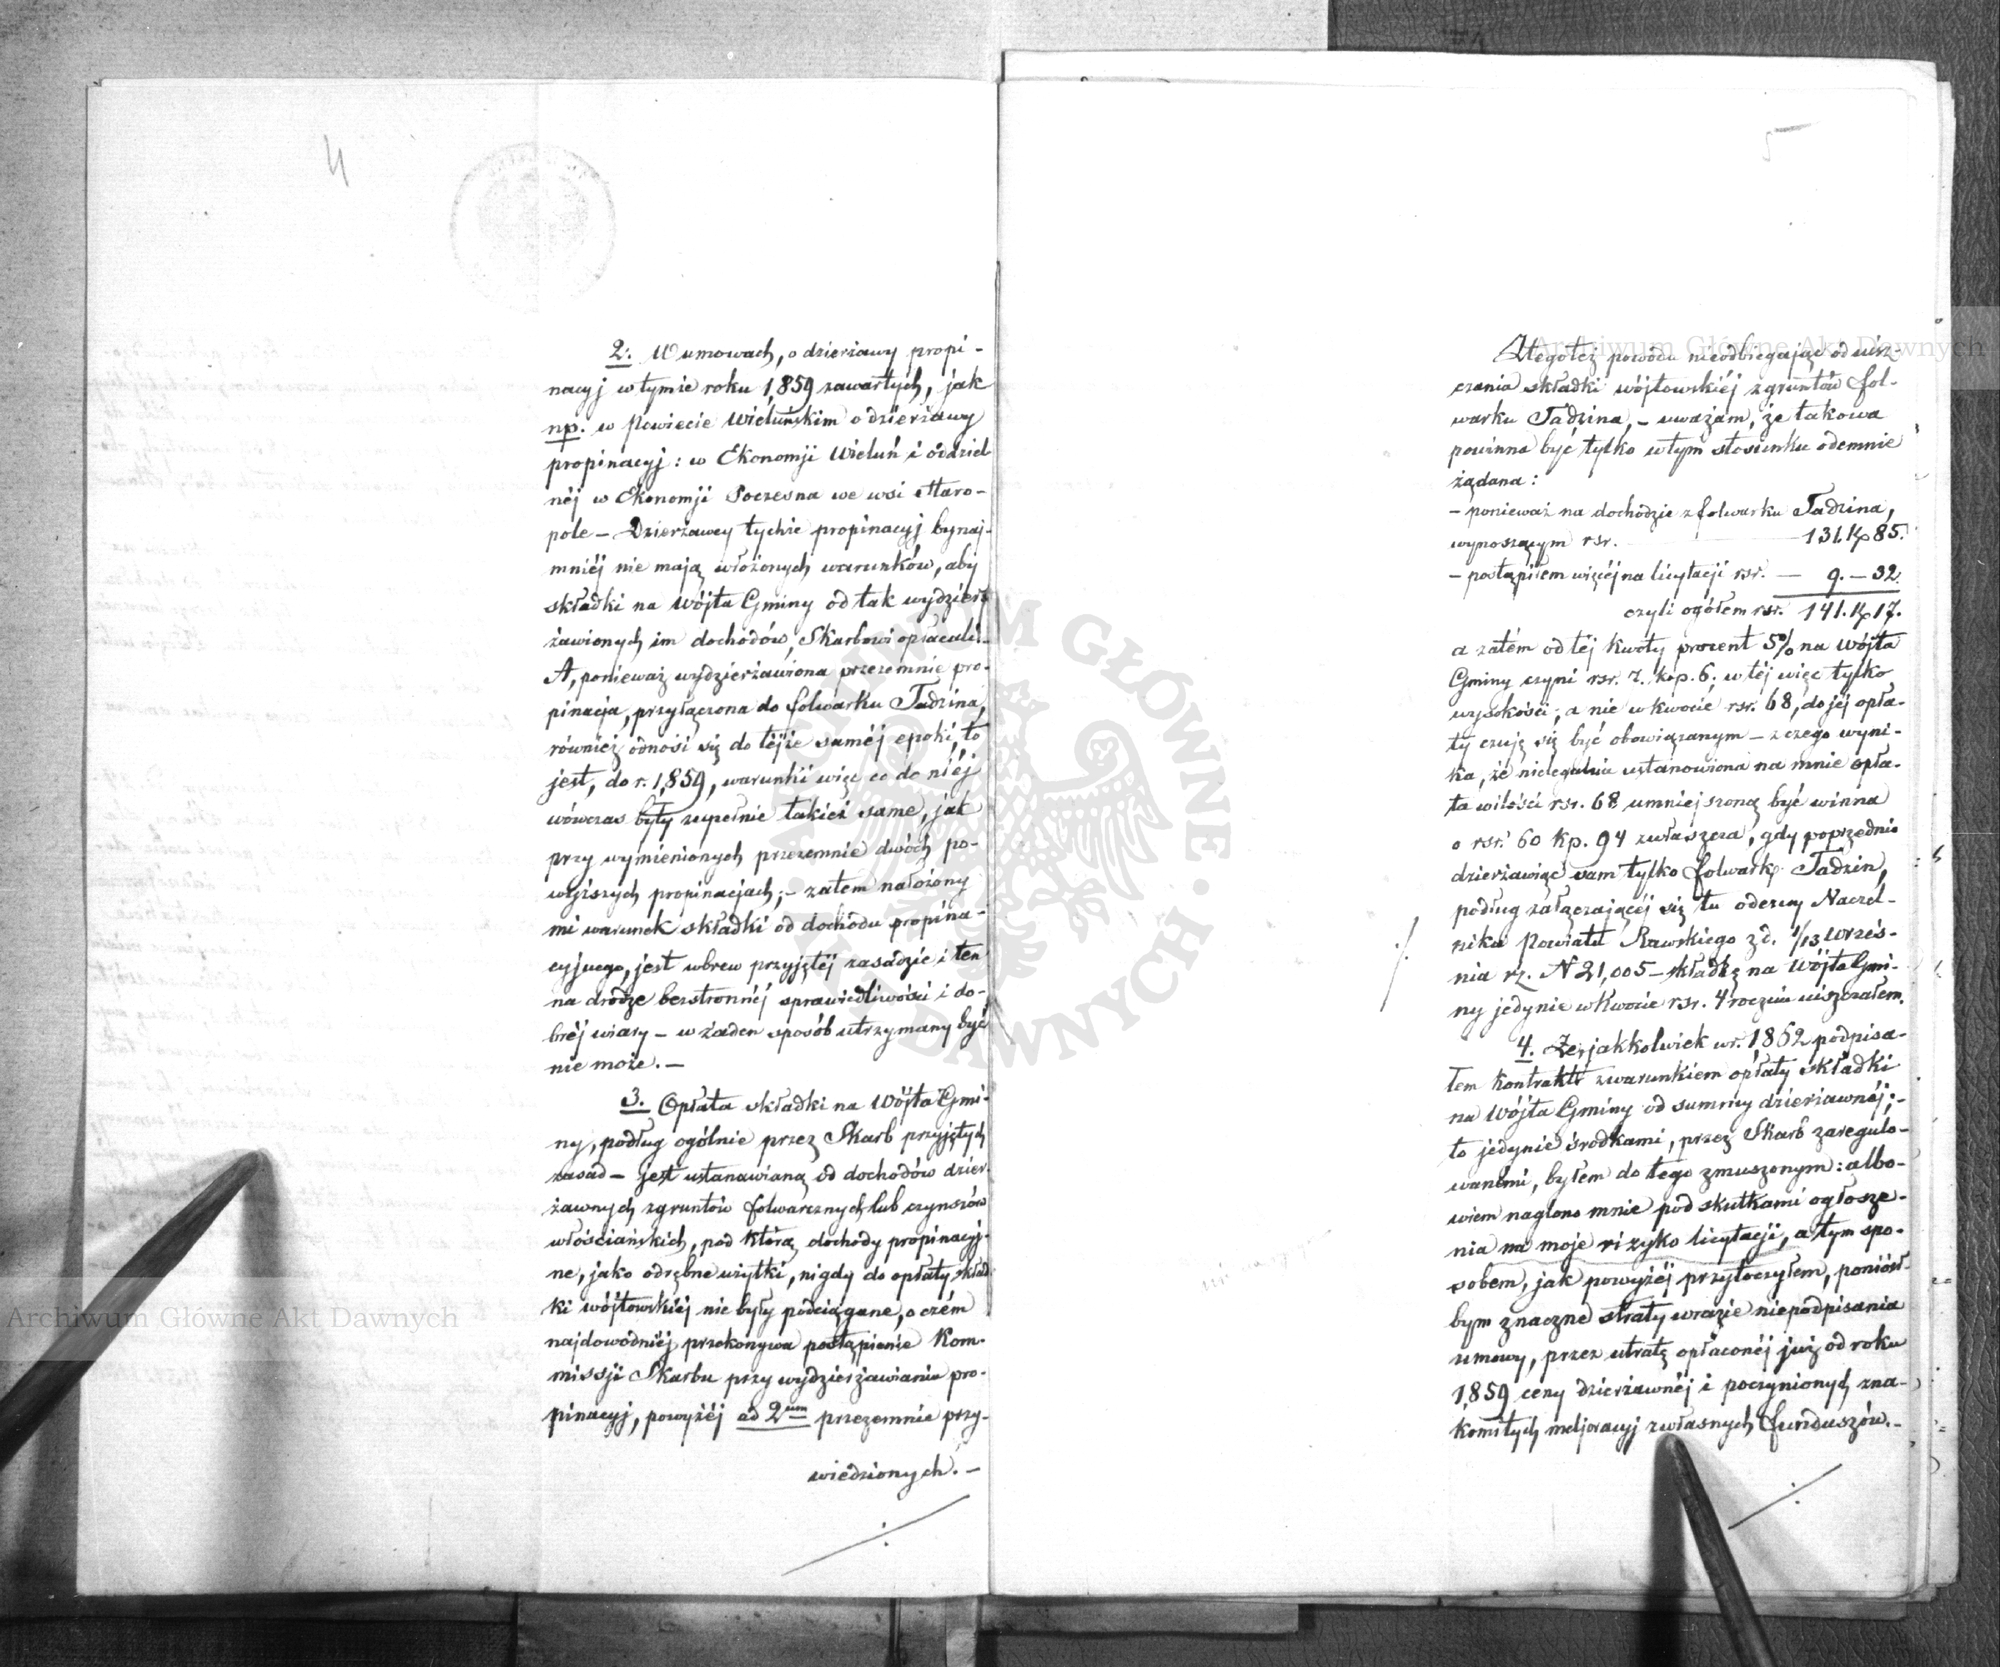 4
2. W umowach, o dzierżawy propi-
nacyj w tymie roku 1,859 zawartych, jak
np. w Powiecie Wieluńskim o dzierżawy
propinacyj: w Ekonomji Wieluń i oddziel
néj w Ekonomji Poczesna we wsi Staro-
pole – Dzierżawcy tychże propinacyj bynaj-
mniéj nie mają włożonych warunków, aby
składki na Wójta Gminy od tak wydzier
żawionych im dochodów, Skarbowi opłacali.-
A, ponieważ wydzierżawiona przezemnie pro-
pinacja, przyłączona do folwarku Tadzina,
również odnosi się do téjże saméj epoki, to
jest, do r. 1,859, warunki więc co do niéj
wówczas były zupełnie takież same, jak
przy wymienionych przezemnie dwóch po-
wyższych propinacjach; – zatem nałożony
mi warunek składki od dochodu propina-
cyjnego, jest wbrew przyjętéj zasadzie i ten
na drodze bezstronnéj sprawiedliwości i do-
bréj wiary – w żaden sposób utrzymany być
nie może. –
3. Opłata składki na Wójta Gmi-
ny, podług ogólnie przez Skarb przyjętych
zasad – jest ustanawianą od dochodów dzier
żawnych z gruntów folwarcznych lub czynszów
włościańskich, pod którą dochody propinacyj-
ne, jako odrębne użytki, nigdy do opłaty skład
ki wójtowskiéj nie były podciągane, o czém
najdowodniéj przekonywa postąpienie Kom-
missji Skarbu przy wydzierżawianiu pro-
pinacyj, powyżéj ad 2um przezemnie przy-
wiedzionych. –
5
Z tegoteż powodu nieodbiegając od uisz-
czania składki wójtowskiéj z gruntów fol-
warku Tadzina, – uważam, że takowa
powinna być tylko w tym stosunku odemnie
żądana:
– ponieważ na dochodzie z folwarku Tadzina,
wynoszącym rsr. — 131. kp 85.
– postąpiłem więcéj na licytacji rsr. — 9. – 32.
czyli ogółem rsr. 141. kp 17.
a zatém od téj kwoty procent 5% na Wójta
Gminy czyni rsr. 7. kop. 6; w téj więc tylko
wysokości; a nie w kwocie rsr. 68, do jéj opła-
ty czuję się być obowiązanym – z czego wyni-
ka, że nielegalnie ustanowiona na mnie opła-
ta w ilości rsr. 68 umniejszoną być winna
o rsr. 60 kp. 94 zwłaszcza, gdy poprzednio
dzierżawiąc sam tylko folwark Tadzin,
podług załączającéj się tu odezwy Naczel-
nika Powiatu Rawskiego z d. 1/13 Wrześ-
nia rz. N 21,005 – składkę na Wójta Gmi-
ny jedynie w kwocie rsr. 4 rocznie uiszczałem.
4. Że, jakkolwiek w r. 1862 podpisa-
łem kontrakt z warunkiem opłaty składki
na Wójta Gminy od summy dzierżawnéj; –
to jedynie środkami, przez Skarb zaregulo-
wanémi, byłem do tego zmuszonym: albo-
wiem naglono mnie pod skutkami ogłosze-
nia na moje rizyko licytacji, a tym spo-
sobem, jak powyżéj przytoczyłem, poniósł-
bym znaczne straty w razie niepodpisania
umowy, przez utratę opłaconéj już od roku
1,859 ceny dzierżawnéj i poczynionych zna-
komitych meljoracyj z własnych funduszów. –
Archiwum Główne Akt Dawnych
Archiwum Główne Akt Dawnych
ARCHIWUM GŁÓWNE · AKT DAWNYCH ·